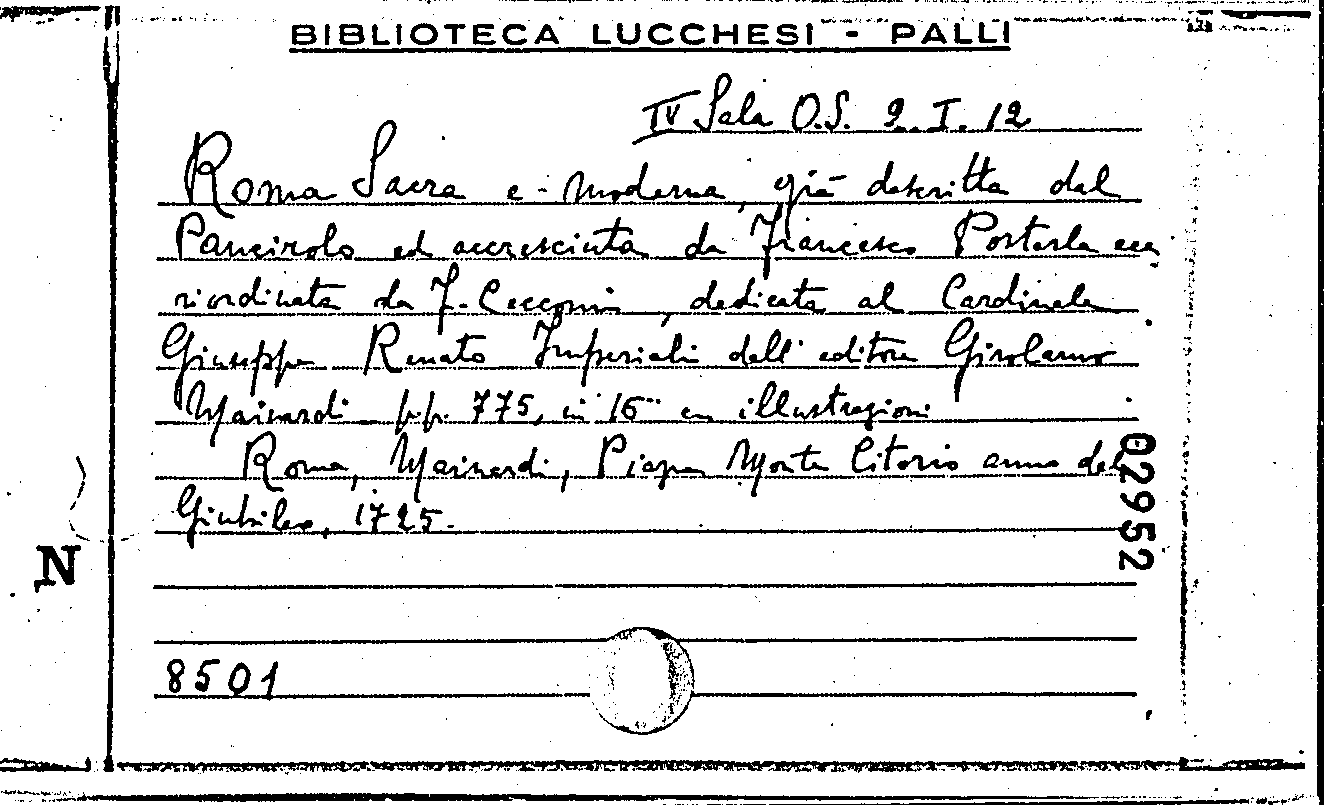 BIBLIOTECA LUCCHESI - PALLI
IV Sala O.S. 2. I. 12
Roma Sacra e moderna, già descritta dal
Pancirolo ed accresciuta da Francesco Posterla ecc,
riordinata da F. Cecconi, dedicata al Cardinale
Giuseppe Renato Imperiali dall'editore Girolamo
Mainardi pp. 775, in 16° con illustrazioni
Roma, Mainardi, Piazza Monte Citorio anno del
Giubileo, 1725.
02952
N
8501